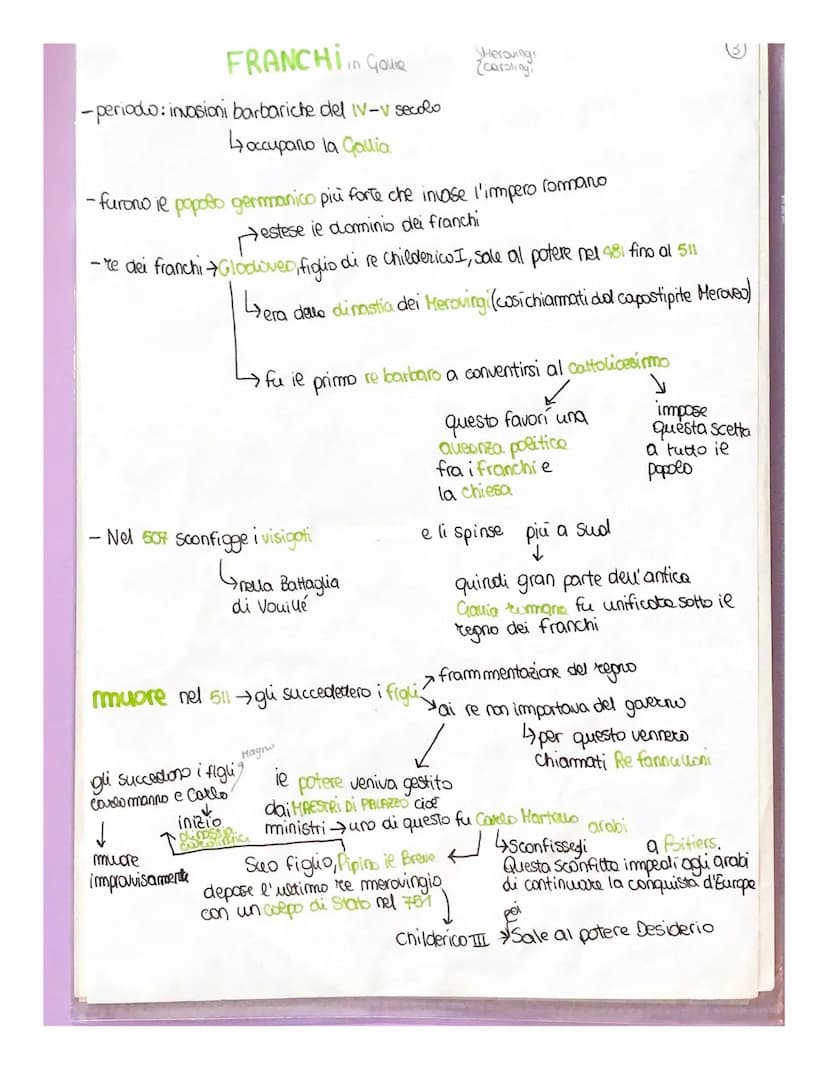 FRANCHI in Gallia
Merovingi
Carolingi
3
- periodo: invasioni barbariche del IV-V secolo
↳ occupano la Gallia
- furono il popolo germanico più forte che invase l'impero romano
→ estese il dominio dei franchi
- re dei franchi → Clodoveo, figlio di re Childerico I, sale al potere nel 481 fino al 511
↳ era della dinastia dei Merovingi (così chiamati dal capostipite Meroveo)
→ fu il primo re barbaro a conventirsi al cattolicesimo
questo favorì una
alleanza politica
fra i franchi e
la chiesa
impose
questa scelta
a tutto il
popolo
- Nel 507 sconfigge i visigoti
e li spinse più a sud
↳ nella Battaglia
di Vouillé
quindi gran parte dell'antica
Gallia romana fu unificata sotto il
regno dei franchi
muore nel 511 → gli succedettero i figli
frammentazione del regno
ai re non importava del governo
↳ per questo vennero
chiamati Re fannulloni
il potere veniva gestito
dai MAESTRI DI PALAZZO cioè
ministri → uno di questo fu Carlo Martello
↳ Sconfissegli arabi a Poitiers.
Questa sconfitta impedì agli arabi
di continuare la conquista d'Europa
Suo figlio, Pipino il Breve
depose l'ultimo re merovingio
con un colpo di Stato nel 751
Childerico III
poi
→ Sale al potere Desiderio
inizio
dinastia
gli succedono i figli
Carlomanno e Carlo
Magno
muore
improvvisamente